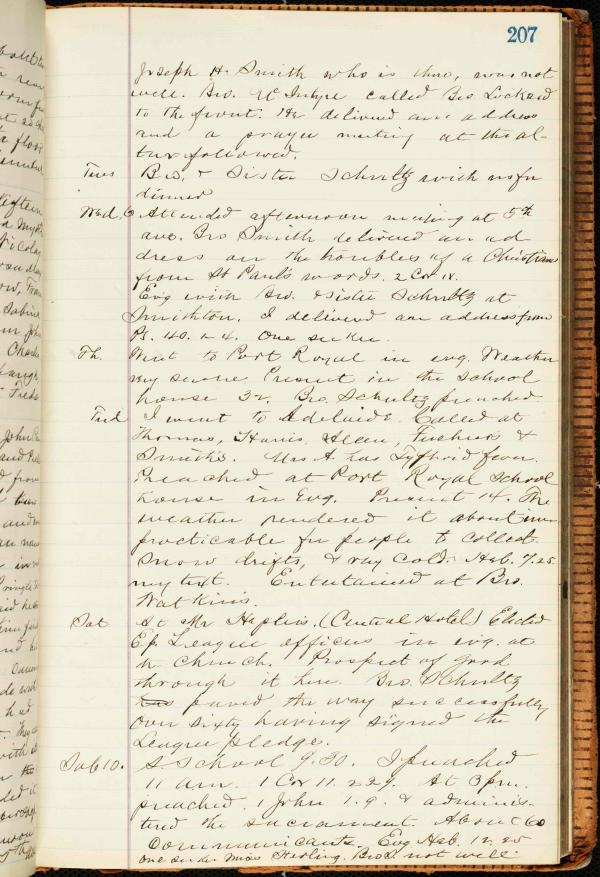 207
Joseph H. Smith who is there, was not
well. Bro. McIntyre called Bro. Lockard
to the front. He delivered an address
and a prayer meeting at the al-
tar followed.
Tues Bro. & Sister Schultz with us for
dinner
Wed. 6 Attended afternoon meeting at 5th
ave. Bro Smith delivered an ad
dress on the troubles of a Christian
from St Paul's words. 2 Cor
Evg with Bro. & Sister Schultz at
Smithton. I delivered an address from
Ps. 40. 1-4. One seeker.
Th. Went to Port Royal in evg. Weather
very severe. Present in the school
house 32. Bro. Schultz preached.
Frid I went to Adelaide. Called at
Thomas, Harris, &
Smith's. Mrs A. has Typhoid fever.
Preached at Port Royal School
house in Evg. Present 14. The
weather rendered it about im
practicable for people to collect.
Snow drifts, & very cold. Heb. 7.25
my text. Entertained at Bro.
Watkins.
Sat At Mr Hepkins. (Central Hotel) Elected
Ep. League officers in evg. at
h Church. Prospect of good
through it here. Bro. Schultz
has paved the way successfully
over sixty having signed the
League pledge.
Sab 10. S School 9.30. I preached
11 am. 1 Cor 11. 22 9. At 3 pm.
preached. 1 John 1.9. & adminis-
tered the sacrament. About 60
Communicants. Evg Heb. 12. 25
one seeker Miss Sterling. Bro S. not well